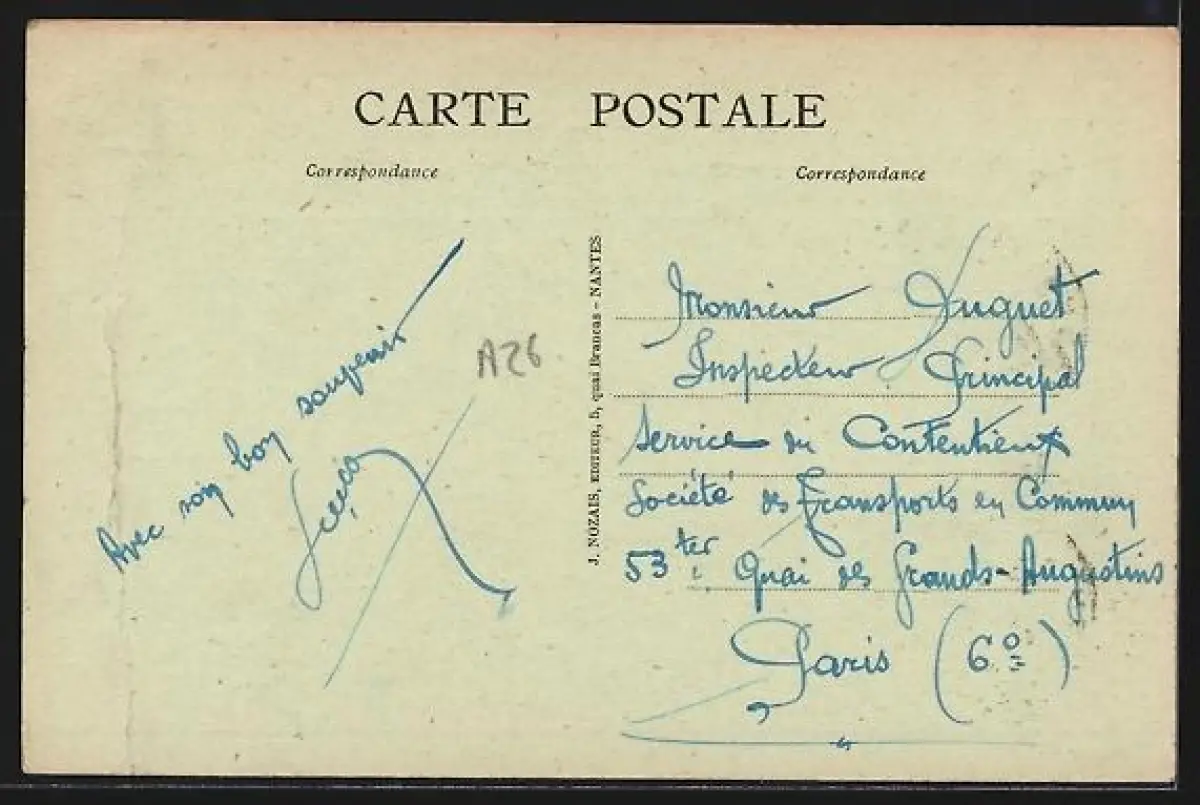 CARTE POSTALE
Correspondance
Correspondance
Avec son bon souvenir
A26
J. NOZAIS, EDITEUR, 5, quai Brancas - NANTES
Monsieur Huguet
Inspecteur Principal
Service du Contentieux
Société des Transports en Commun
53 ter. Quai des Grands-Augustins
Paris (6º)